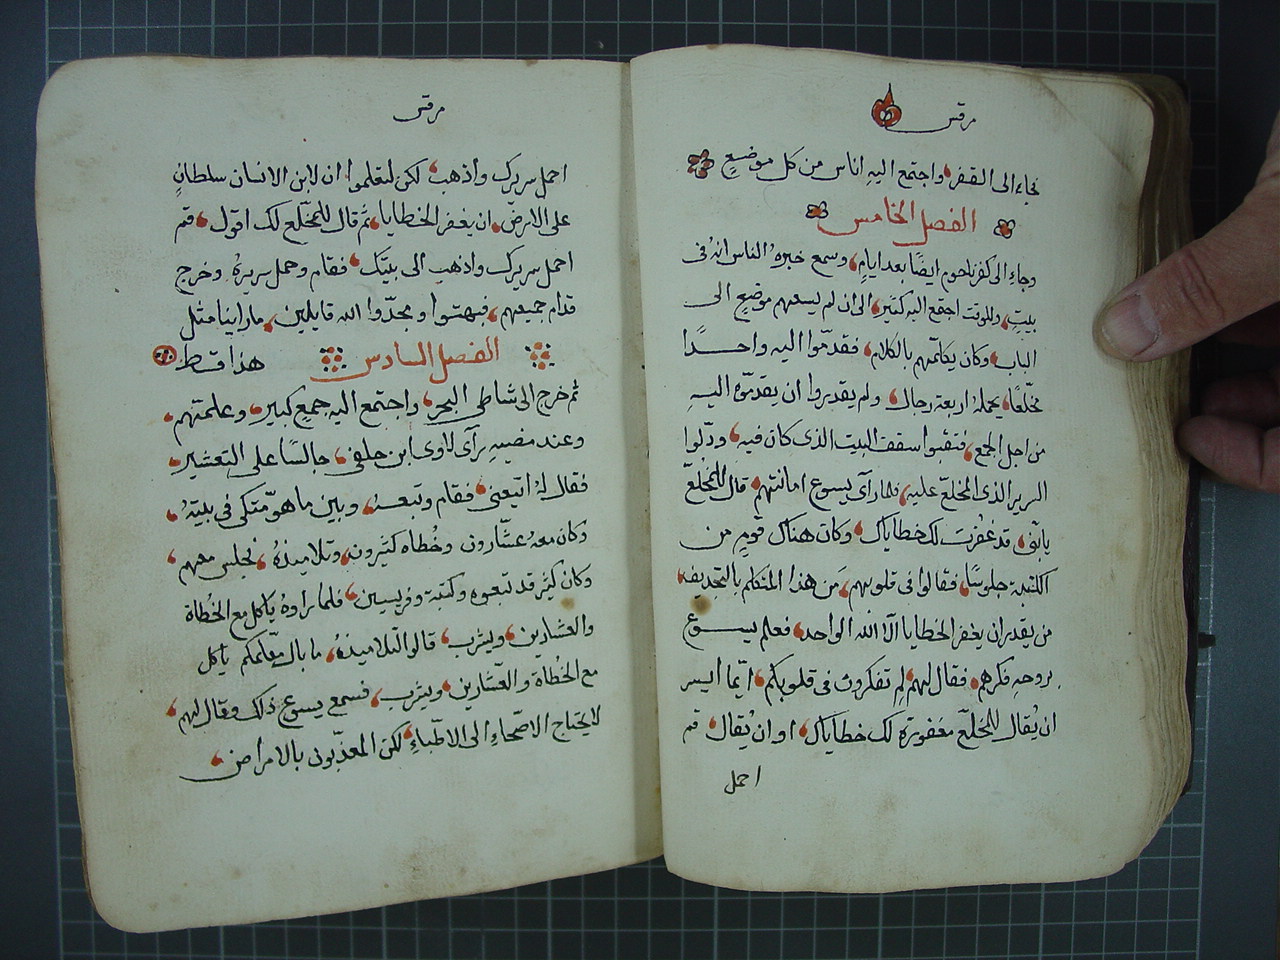 مرقس
فجاء الى القفر واجتمع اليه اناس من كل موضع
الفصل الخامس
وجاء الى كفرناحوم ايضًا بعد ايام، وسمع خبره الناس انهُ فى
بيتٍ، وللوقت اجتمع اليه كثير، الى ان لم يسعهم موضع الى
الباب، وكان يكلّمهم بالكلام، فقدمّوا اليه واحدًا
مخلّعًا، يحمله اربعة رجال، ولم يقدروا ان يقدموّه اليه
من اجل الجمع، فنقبوا سقف البيت الذى كان فيه، ودّلوا
السرير الذى المخلّع عليه، فلما رآى يسوع امانتهم، قال للمخلّع
يابنّى، قد غُفِرَت لك خطاياك، وكان هناك قومٍ من
الكتبة جلوسًا، فقالوا فى قلوبهم، مَن هذا المتكلم بالتجديف،
من يقدر ان يغفر الخطايا الّا الله الواحد، فعلم يسوع
بروحهِ فكرهم، فقال لهم، لِمِ تفكرون فى قلوبكم، ايّما ايسر
ان يُقال للمخلّع مغفورة لك خطاياك، او ان يُقال، قم
احمل
مرقس
احمل سريرك واذهب، لكن لتعلموا ان لابن الانسان سلطانٍ
على الارض، ان يغفر الخطايا، ثم قال للمخّلع لك اقول، قم
احمل سريرك واذهب الى بيتك، فقام وحمل سريرهُ وخرج
قدام جميعهم، فبهتوا ومجدّوا الله قايلين، ما راينا مثل
هذا قط الفصل السادس
ثم خرج الى شاطى البحر، واجتمع اليه جميع كبير، وعلمتهم،
وعند مضيهِ رآى لاوى ابن حلفى، جالسًا على التعشير،
فقال لهُ اتبعنى، فقام وتبعهُ، وبين ما هو متكى فى بيتهُ،
وكان معهُ عشّارون وخُطاه كثيرون، وتلاميذهُ، فجلس معهم،
وكان كثير قد تبعوه وكتبة وفريسين، فلما راوهُ ياكل مع الخُطاة
والعشارين، ويشرب، قالوا لتلاميذهُ، ما بال معلّمكم ياكل
مع الخُطاة والعشّارين، ويشرب، فسمع يسوع ذلك وقال لهم،
لا يحتاج الاصحّاء الى الاطّباء، لكن المعذّبون بالامراض،